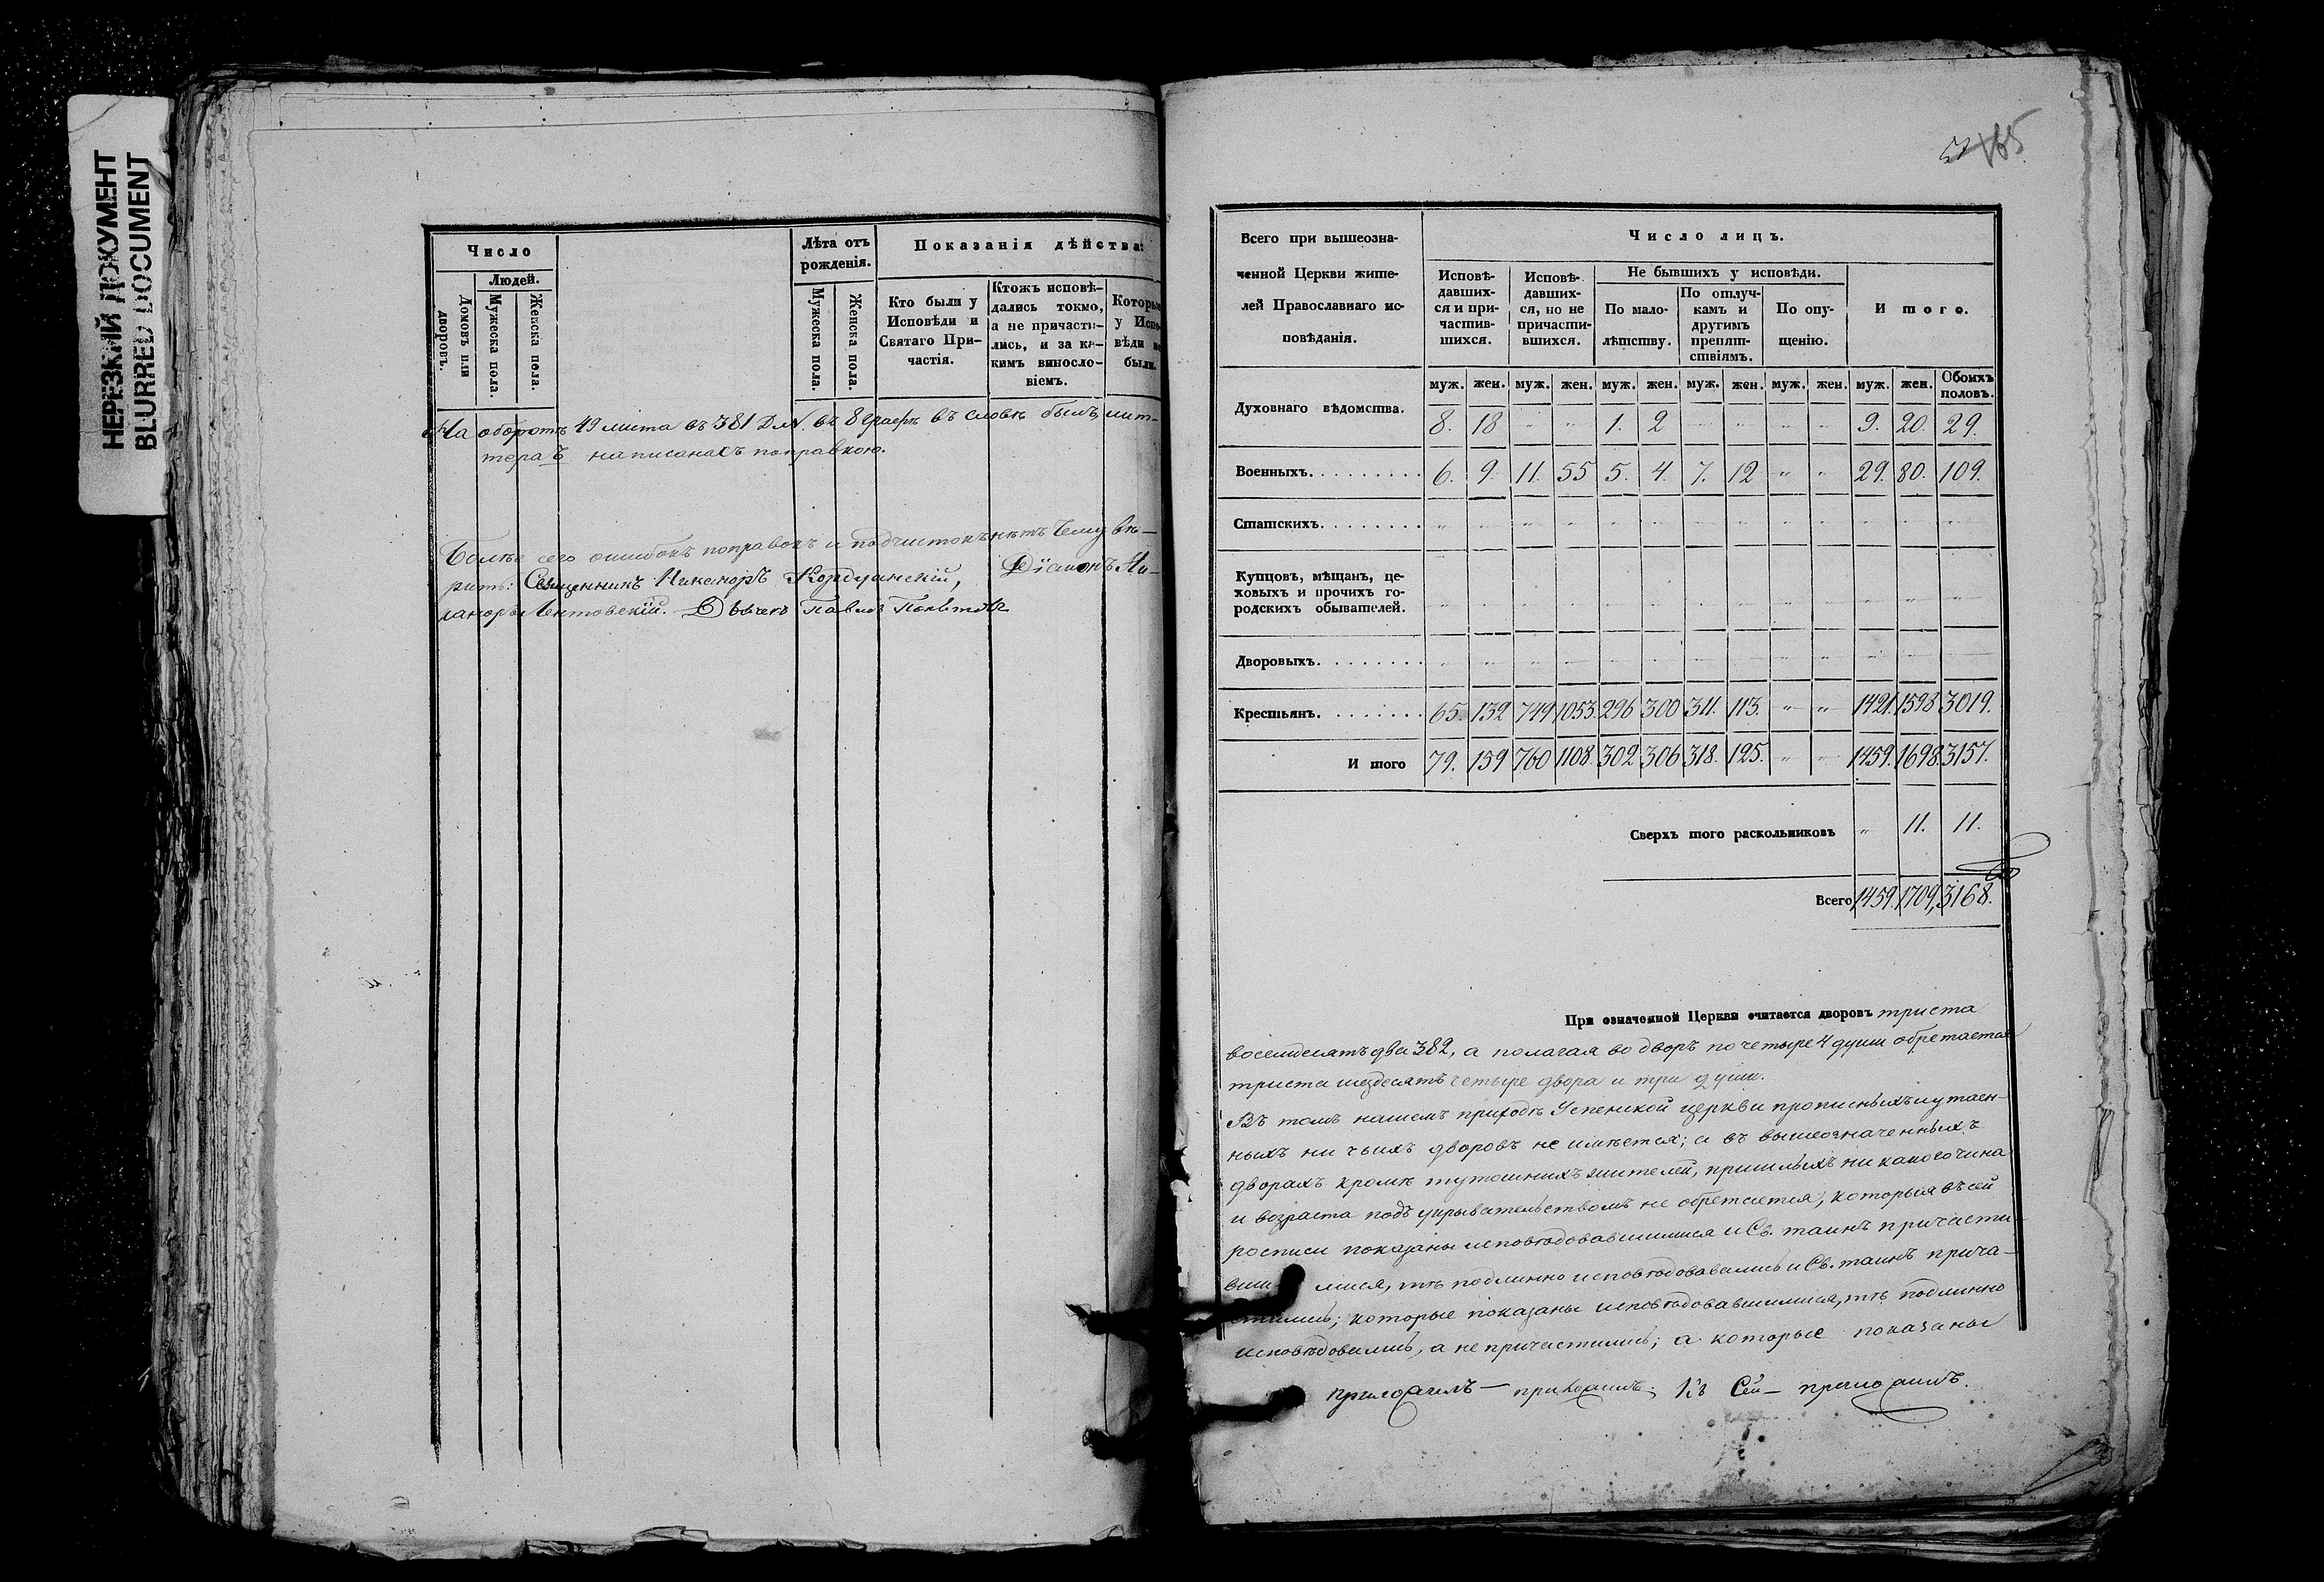 НЕРЕЗКИЙ ДОКУМЕНТ
BLURRED DOCUMENT
Число
Людей.
Домовъ или дворовъ.
Мужеска пола.
Женска пола.
Лѣта отъ рожденія.
Мужеска пола.
Женска пола.
Показанія дѣйства:
Кто были у Исповѣди и Святаго Причастія.
Ктожъ исповѣдались токмо, а не причастились, и за какимъ винословіемъ.
Которые у Исповѣди не были.
На оборотѣ 49 листа въ 381 Д. №. въ 8 графѣ въ словѣ былъ, лит-
тера ъ написана съ поправкою.
Болѣе сего ошибокъ поправокъ и подчистокъ нѣтъ Чему вѣ-
рить: Священникъ Никаноръ Кордунскій, Діаконъ Ни-
каноръ Лентовскій. Дьячекъ Павелъ
165
Всего при вышеозна-
ченной Церкви жите-
лей Православнаго ис-
повѣданія.
Число лицъ.
Исповѣ-
давших-
ся и при-
частив-
шихся.
Исповѣ-
давших-
ся, но не
причасти-
вшихся.
Не бывшихъ у исповѣди.
По мало-
лѣтству.
По отлуч-
камъ и
другимъ
препят-
ствіямъ.
По опу-
щенію.
Итого.
муж. жен. муж. жен. муж. жен. муж. жен. муж. жен. муж. жен. Обоихъ половъ.
Духовнаго вѣдомства. 8. 18 „ „ 1. 2 „ „ „ „ 9. 20. 29.
Военныхъ. 6. 9. 11. 55 5. 4. 7. 12 „ „ 29. 80. 109.
Статскихъ. „ „ „ „ „ „ „ „ „ „ „ „ „
Купцовъ, мѣщанъ, це-
ховыхъ и прочихъ го-
родскихъ обывателей. „ „ „ „ „ „ „ „ „ „ „ „ „
Дворовыхъ. „ „ „ „ „ „ „ „ „ „ „ „ „
Крестьянъ. 65. 132 749 1053. 296 300 311. 113. „ „ 1421. 1598 3019.
И того 79. 159 760 1108. 302 306 318. 125. „ „ 1459. 1698. 3157.
Сверхъ того раскольниковъ „ 11. 11.
Всего 1459. 1709, 3168.
При означенной Церкви считается дворовъ триста
восемдесятъ два 382, а полагая во дворъ по четыре 4 души обретается
триста шездесятъ четыре двора и три души.
Въ томъ нашемъ приходѣ Успенской церкви прописныхъ и утаен-
ныхъ ни чьихъ дворовъ не имѣется; а въ вышеозначенныхъ
дворахъ кромѣ тутошнихъ жителей, пришлыхъ ни какого чина
и возраста подъ укрывательствомъ не обретается, которыя въ сей
росписи показаны исповѣдовавшимися и Св. таинъ причасти-
вши- мися, тѣ подлинно исповѣдовались и Св. таинъ прича-
стились; которые показаны исповѣдовавшимися, тѣ подлинно
исповѣдовались, а не причастились; а которые показаны
Къ Сей